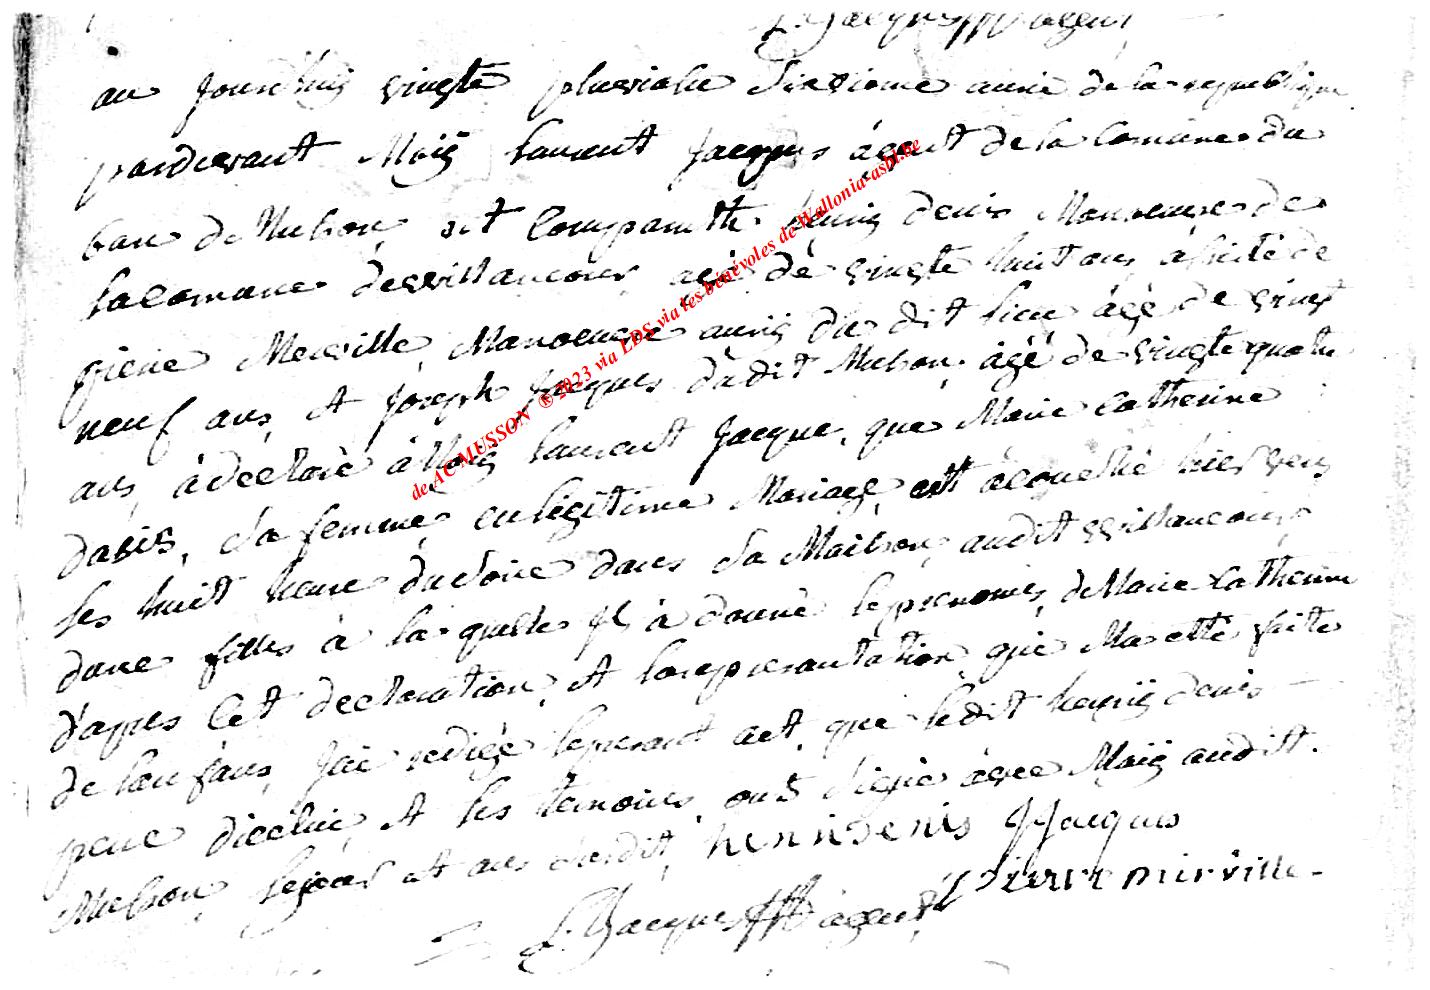 L. Jacques agent
au jourdhuij vingte pluviose Sixsieme anné de la republique
pardevant Moij laurent Jacques agent de la Comune du
ban de Musson, est Comparuth henrij denis Manoeuvre de
la Comune dewillancour, agé de vingte huit ans, assisté de
piere Merville Manoeuvre aussij du dit lieu âgé de vingt
neuf ans, et Joseph Jacques dudit Musson âgé de vingte quatre
ans, à declaré à Moij laurent Jacque, que Marie Catherine
davis, Sa femme, en legitime Mariage, est àcouché hier vers
les huit heure du Soire dans Sa Maison, audit willancour,
dune fille à la quelle Jl à donné les prenomes, de Marie Catherine
d'apres Cet declaration, et la representation que Ma etté faite
de lan fans, Jaie redigé le present act que ledit henrij denis
pere dicelui, et les temoins ont Signe avec Moij audit
Musson, le jour et ans Susdit, henri denis JJacques
L. Jacques agent Pierre mirville
de AC MUSSON ® 2023 via LDS via les bénévoles de Wallonia-asbl.be